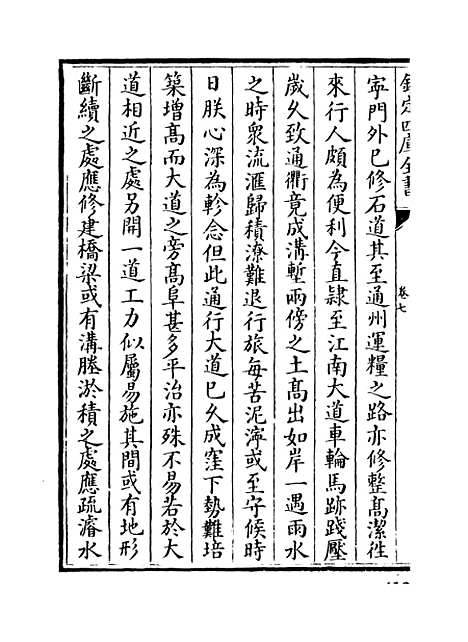 欽定四庫全書
卷七
寜門外已修石道其至通州運糧之路亦修整髙潔徃
來行人頗為便利今直隷至江南大道車輪馬跡踐壓
嵗久致通衢竟成溝塹兩傍之土髙出如岸一遇雨水
之時衆流滙歸積潦難退行旅每苦泥濘或至守候時
日朕心深為軫念但此通行大道已久成窪下勢難培
築増髙而大道之旁髙阜甚多平治亦殊不易若於大
道相近之處另開一道工力似屬易施其間或有地形
斷續之處應修建橋梁或有溝塍淤積之處應疏濬水